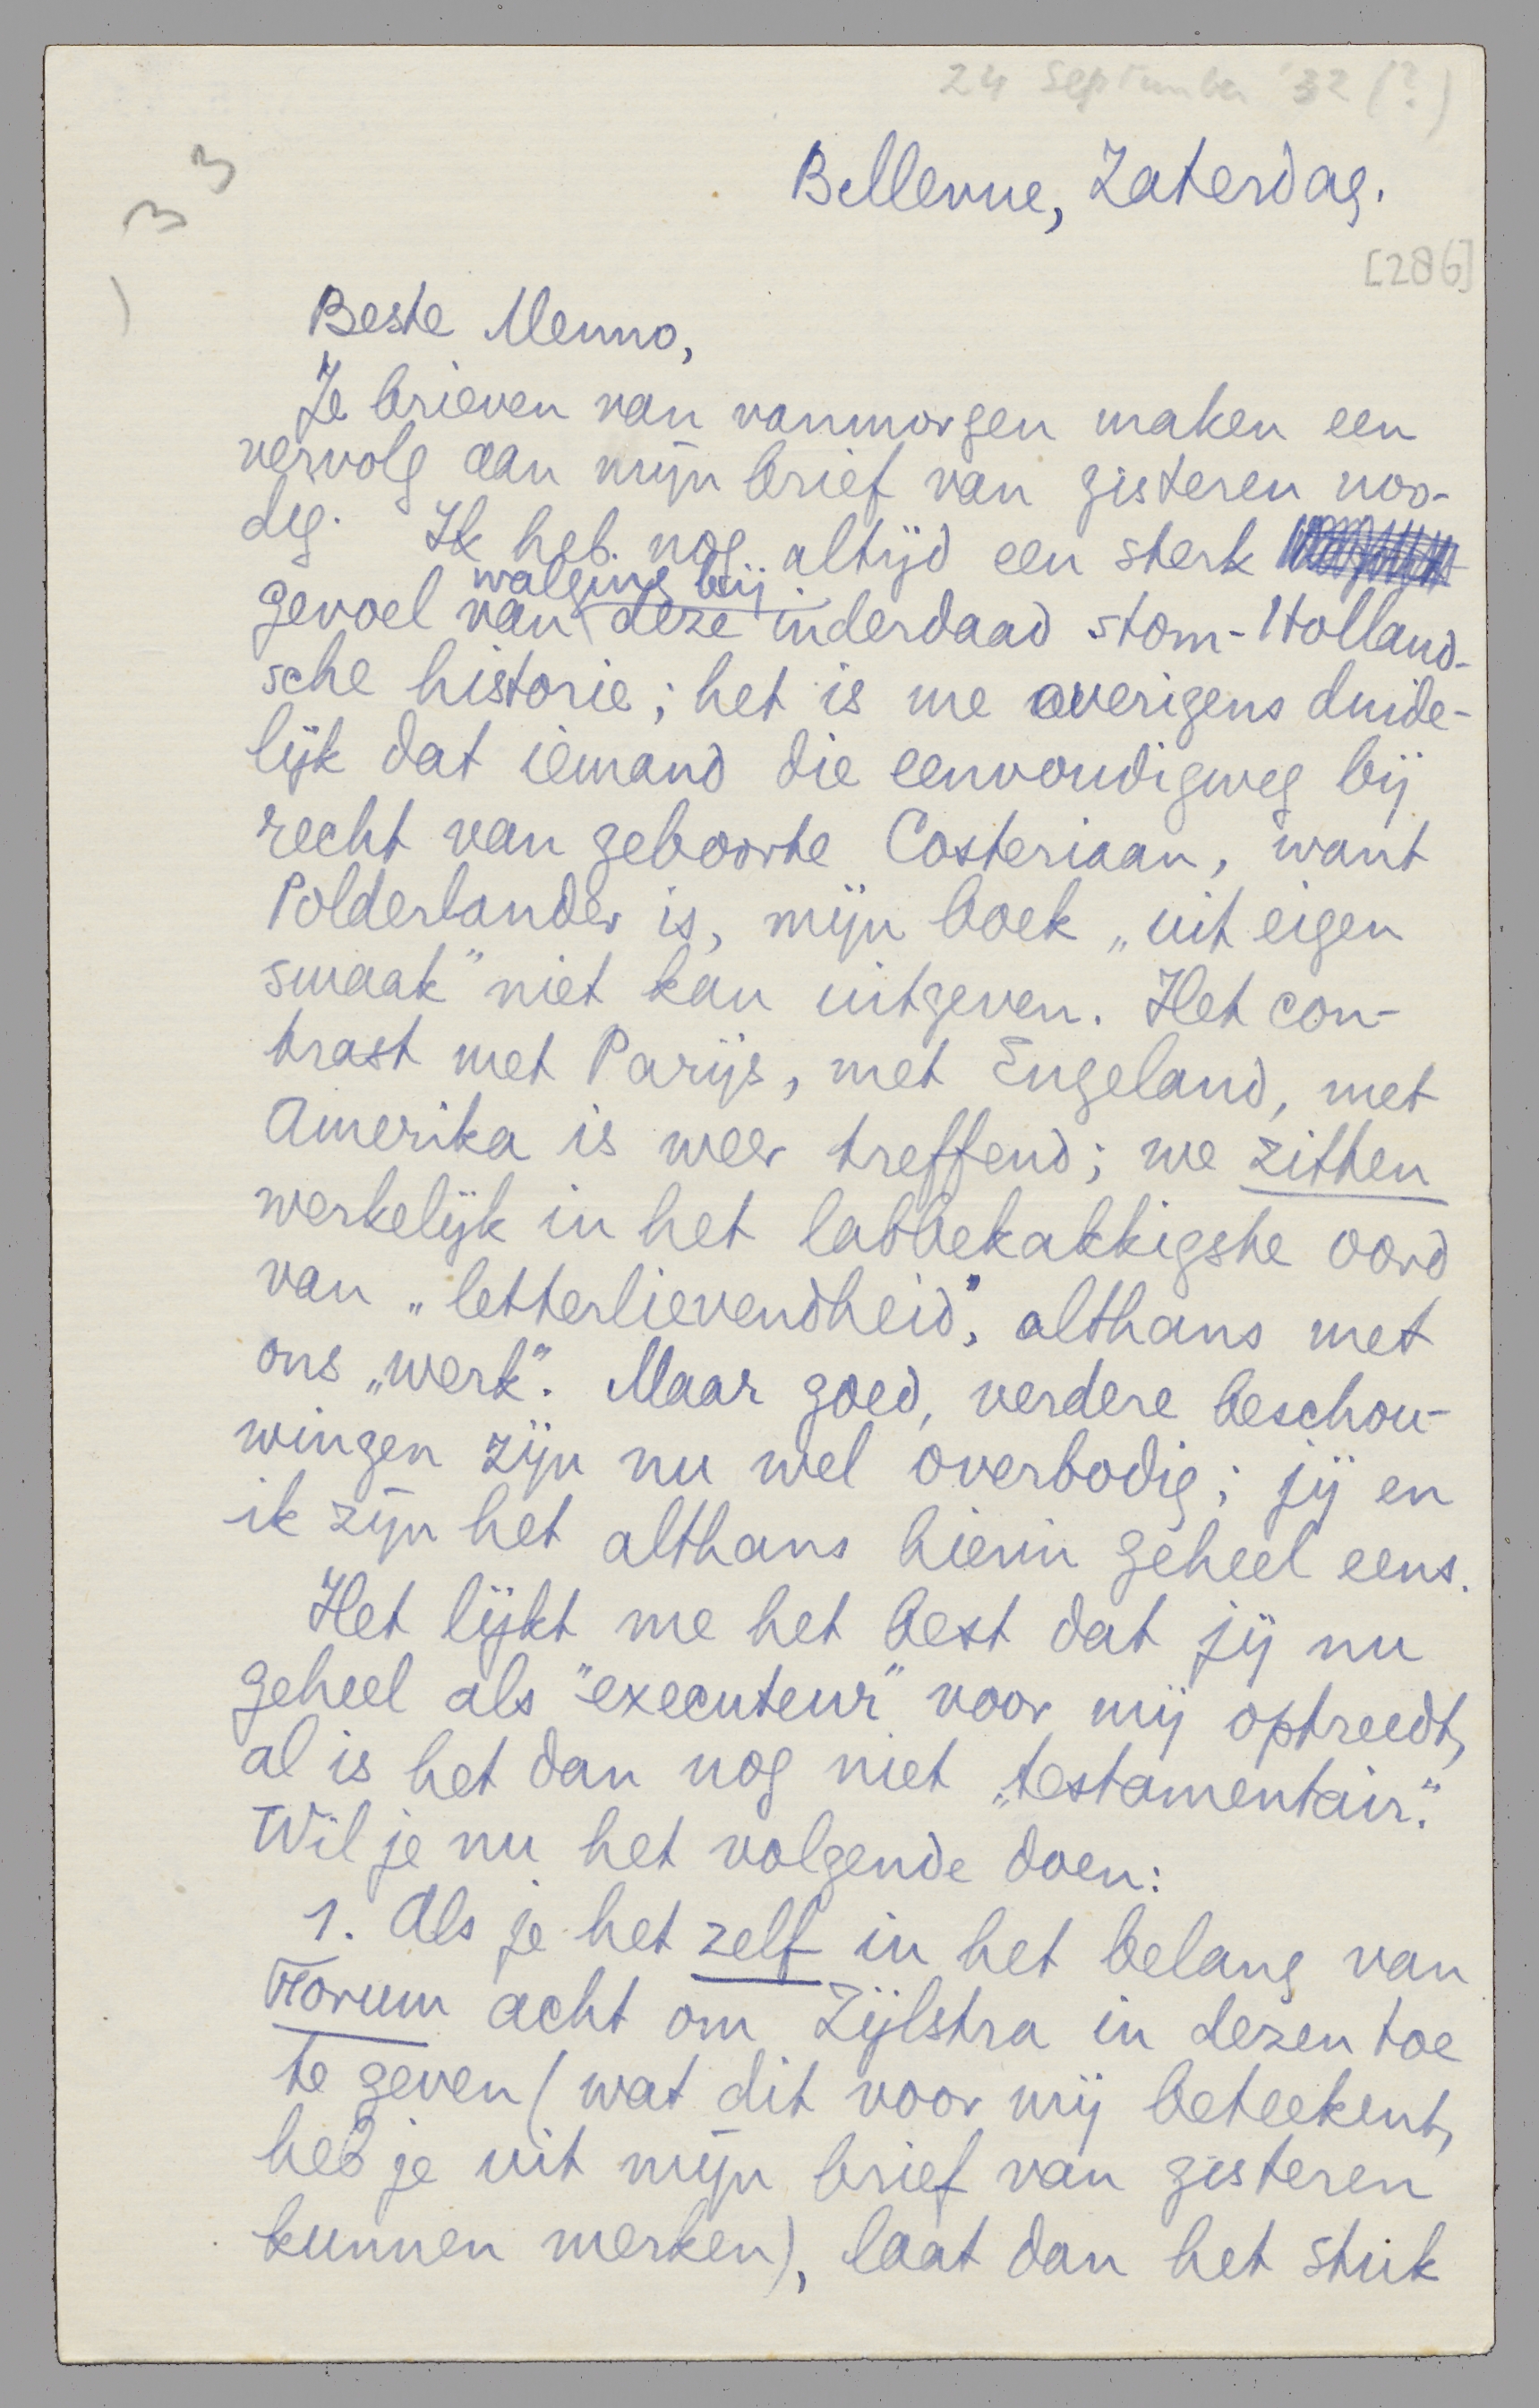 24 September '32 (?)
Bellevue, Zaterdag.
[286]
Beste Menno,
Je brieven van vanmorgen maken een
vervolg aan mijn brief van gisteren noo-
dig. Ik heb nog altijd een sterk
walging bij
gevoel van deze inderdaad stom-Holland-
sche historie; het is me overigens duide-
lijk dat iemand die eenvoudigweg bij
recht van geboorte Costeriaan, want
Polderlander is, mijn boek „uit eigen
smaak" niet kan uitgeven. Het con-
trast met Parijs, met Engeland, met
Amerika is weer treffend; we zitten
werkelijk in het labbekakkigste oord
van „letterlievendheid", althans met
ons „werk". Maar goed, verdere beschou-
wingen zijn nu wel overbodig; jij en
ik zijn het althans hierin geheel eens.
Het lijkt me het best dat jij nu
geheel als "executeur" voor mij optreedt,
al is het dan nog niet „testamentair".
Wil je nu het volgende doen:
1. Als je het zelf in het belang van
Forum acht om Zijlstra in dezen toe
te geven (wat dit voor mij beteekent,
heb je uit mijn brief van gisteren
kunnen merken), laat dan het stuk